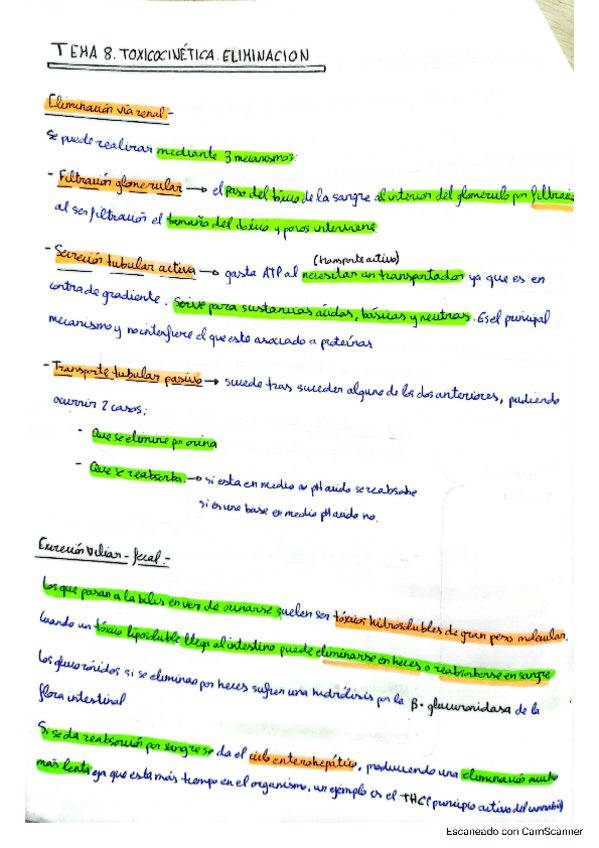 TEMA 8. TOXICOCINÉTICA. ELIMINACION
Eliminación vía renal.-
Se puede realizar mediante 3 mecanismos:
- Filtración glomerular → el paso del tóxico de la sangre al interior del glomérulo por filtración
al ser filtración el tamaño del tóxico y poros interviene
(transporte activo)
- Secreción tubular activa → gasta ATP al necesitar un transportador ya que es en
contra de gradiente. Sirve para sustancias ácidas, básicas y neutras. Es el principal
mecanismo y no interfiere el que este asociado a proteínas
- Transporte tubular pasivo → sucede tras suceder alguno de los dos anteriores, pudiendo
ocurrir 2 casos:
- Que se elimine por orina
- Que se reabsorba. → si esta en medio pH acido se reabsorbe
si es una base en medio pH acido no.
Excreción biliar - fecal.-
Los que pasan a la bilis en vez de orinarse suelen ser tóxicos hidrosolubles de gran peso molecular.
Cuando un tóxico liposoluble llega al intestino puede eliminarse en heces o reabsorberse en sangre
Los glucorónidos si se eliminan por heces sufren una hidrólisis por la β-glucuronidasa de la
flora intestinal
Si se da reabsorción por sangre se da el ciclo enterohepático, produciendo una eliminación mucho
más lenta ya que esta más tiempo en el organismo, un ejemplo es el THC (principio activo del cannabis)
Escaneado con CamScanner